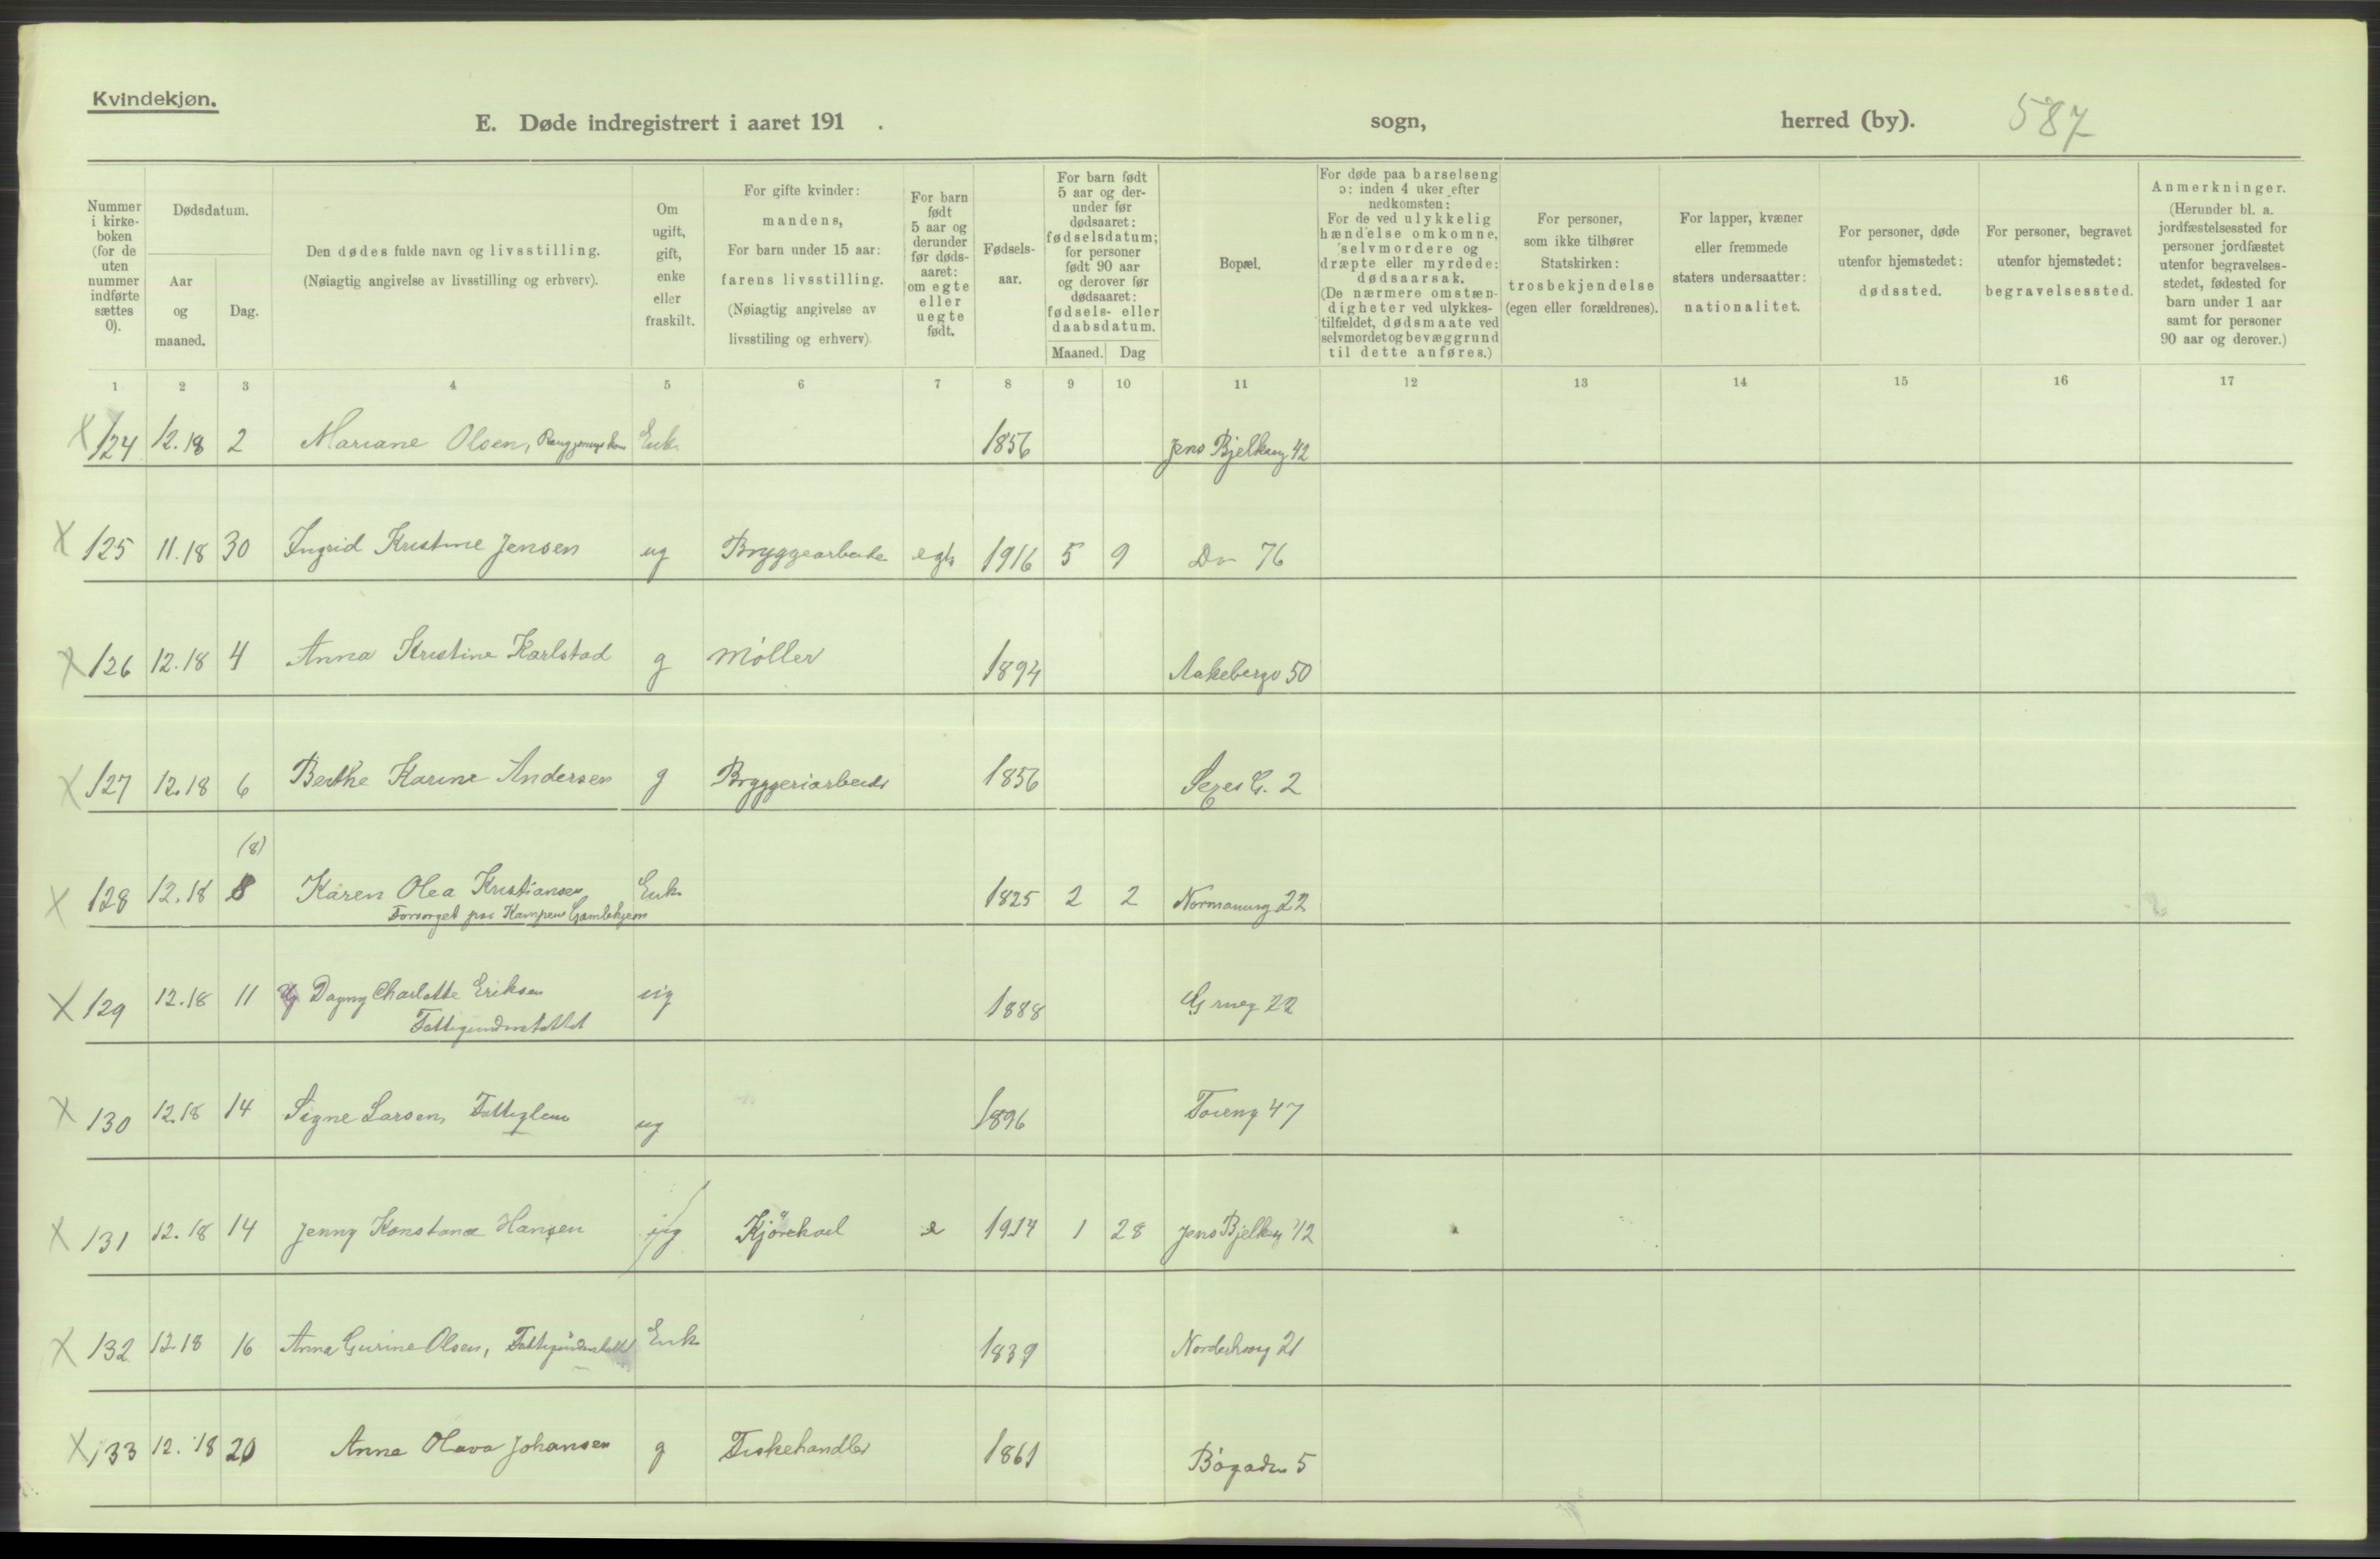 Kvindekjøn.
E. Døde indregistrert i aaret 191 . sogn, herred (by). 587
Nummer i kirke-boken (for de uten nummer indførte sættes 0).
Dødsdatum.
Aar og maaned.
Dag.
Den dødes fulde navn og livsstilling.
(Nøiagtig angivelse av livsstilling og erhverv).
Om ugift, gift, enke eller fraskilt.
For gifte kvinder: mandens,
For barn under 15 aar: farens livsstilling.
(Nøiagtig angivelse av livsstiling og erhverv).
For barn født 5 aar og derunder før døds-aaret: om egte eller uegte født.
Fødsels-aar.
For barn født 5 aar og der-under før dødsaaret: fødselsdatum; for personer født 90 aar og derover før dødsaaret: fødsels- eller daabsdatum.
Maaned. Dag
Bopæl.
For døde paa barselseng ɔ: inden 4 uker efter nedkomsten:
For de ved ulykkelig hændelse omkomne, selvmordere og dræpte eller myrdede: dødsaarsak.
(De nærmere omstæn-digheter ved ulykkes-tilfældet, dødsmaate ved selvmordet og bevæggrund til dette anføres.)
For personer, som ikke tilhører Statskirken: trosbekjendelse (egen eller forældrenes).
For lapper, kvæner eller fremmede staters undersaatter: nationalitet.
For personer, døde utenfor hjemstedet: dødssted.
For personer, begravet utenfor hjemstedet: begravelsessted.
Anmerkninger.
(Herunder bl. a. jordfæstelsessted for personer jordfæstet utenfor begravelses-stedet, fødested for barn under 1 aar samt for personer 90 aar og derover.)
1 2 3 4 5 6 7 8 9 10 11 12 13 14 15 16 17
X 124 12.18 2 Mariane Olsen, Enk. 1856 Jens Bjelkesg 42
X 125 11.18 30 Ingrid Kristine Jensen ug Bryggearbeide egte 1916 5 9 Do 76
X 126 12.18 4 Anna Kristine Karlstad g Møller 1894 Aakebergv 50
X 127 12.18 6 Berthe Karine Andersen g Bryggeriarbeide 1856 2
(8)
X 128 12.18 8 Karen Olea Kristiansen Enk 1825 2 2 Normannsg 22
Forsørget paa Kampens Gamlehjem
X 129 12.18 11 Dagny Charlotte Eriksen ug 1888 Grueg 22
Fattigunderstøttet
X 130 12.18 14 Signe Larsen, Fattiglem ug 1896 Tøieng 47
X 131 12.18 14 Jenny Konstance Hansen ug Kjørekarl e 1914 1 28 Jens Bjelkesg 12
X 132 12.18 16 Anna Gurine Olsen, Fattigunderstøttet Enk 1839 Norderhovg 21
X 133 12.18 20 Anne Olava Johansen g Fiskehandler 1861 Bøgaden 5